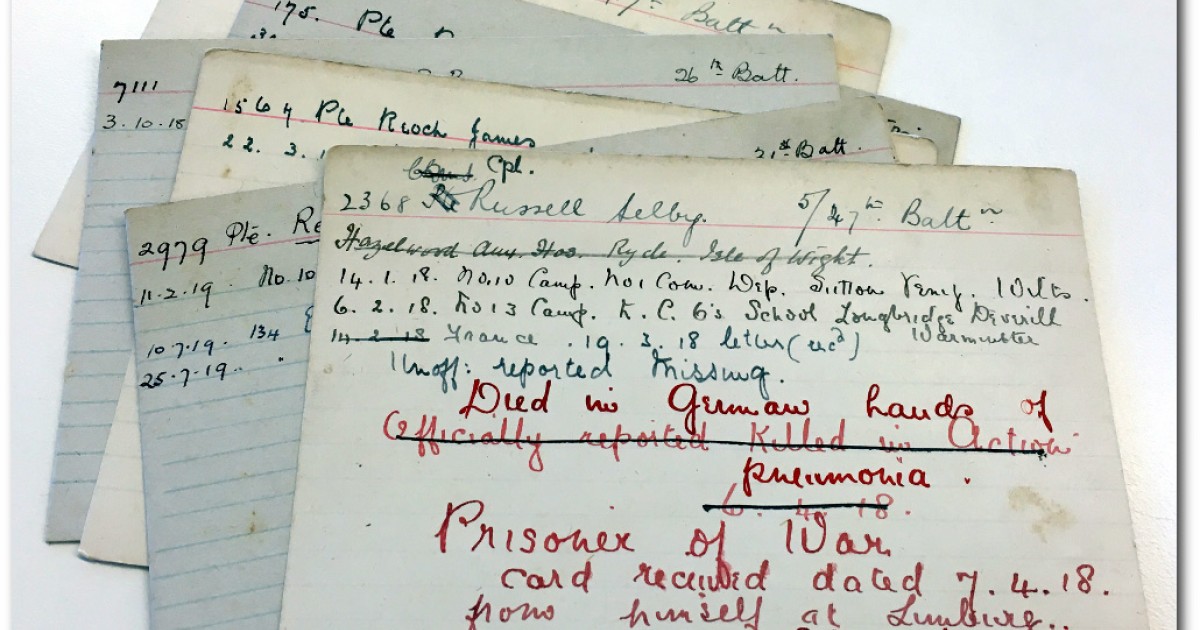 175. Pte
Battn
7111
26th Batt.
3.10.18
1564 Pte Rioch James
22. 3. 1
21st Batt.
Cpl.
2368 Pte Russell Selby. 5/47th Battn
Hazelwood Aux. Hos. Ryde. Isle of Wight.
14.1.18. No.10 Camp. No1 Com. Dep. Sutton Veny. Wilts.
6.2.18. No 13 Camp. N.C.O's School Longbridge Deverill
Warminster
14.2.18 France. 19.3.18 letter (recd)
Unoff: reported Missing.
Died in German hands of
Officially reported Killed in Action
pneumonia.
6.4.18.
Prisoner of War
card received dated 7.4.18.
from himself at Limburg..
2979 Pte. Re
11.2.19. No.10
10.7.19. 134
25.7.19.